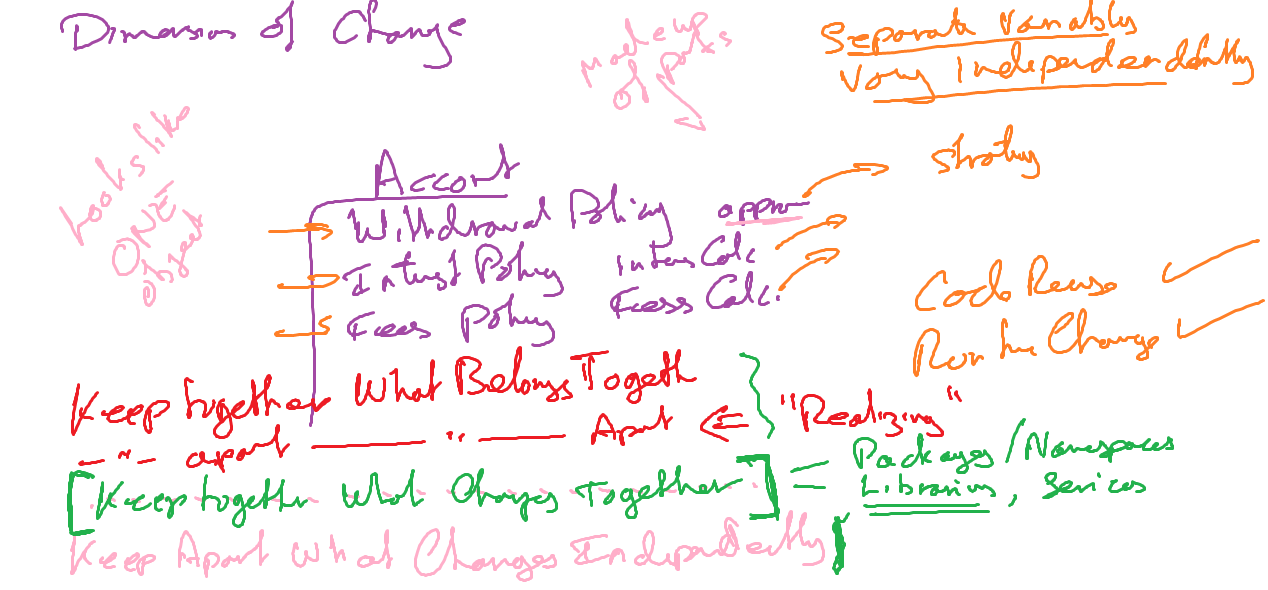 Dimension of Change
Made up
Of parts
Separate Variably
Vary Independendently
Looks like
ONE
object
Account
Strategy
Withdrawal Policy
Interest Policy Inters Calc
Fees Policy Feess Calc.
Code Reuse
Run time Change
Keep together What Belongs Togeth
— " — apart — " — Apart ⇐ "Realizing"
[Keep together What Changes Together] = Packages / Namespaces
Libraries, Services
Keep Apart What Changes Independently